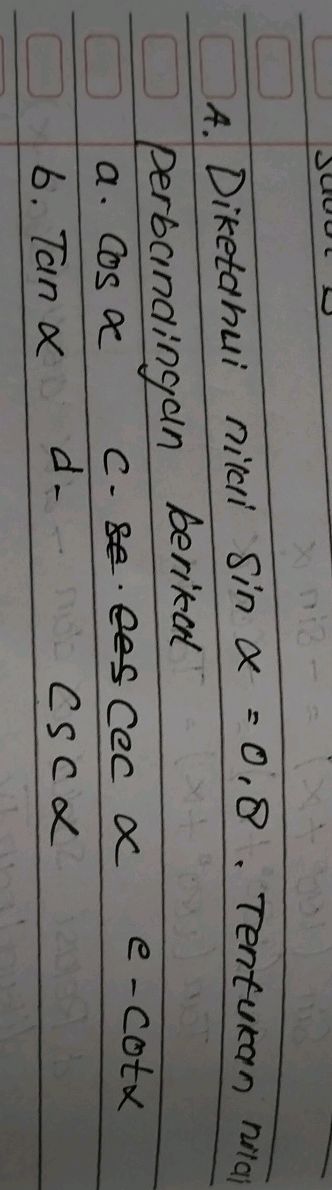 A. Diketahui nilai sin α = 0,8. Tentukan nilai
perbandingan berikut
a. Cos α c. Cec α e - cot α
b. Tan α d. Csc α